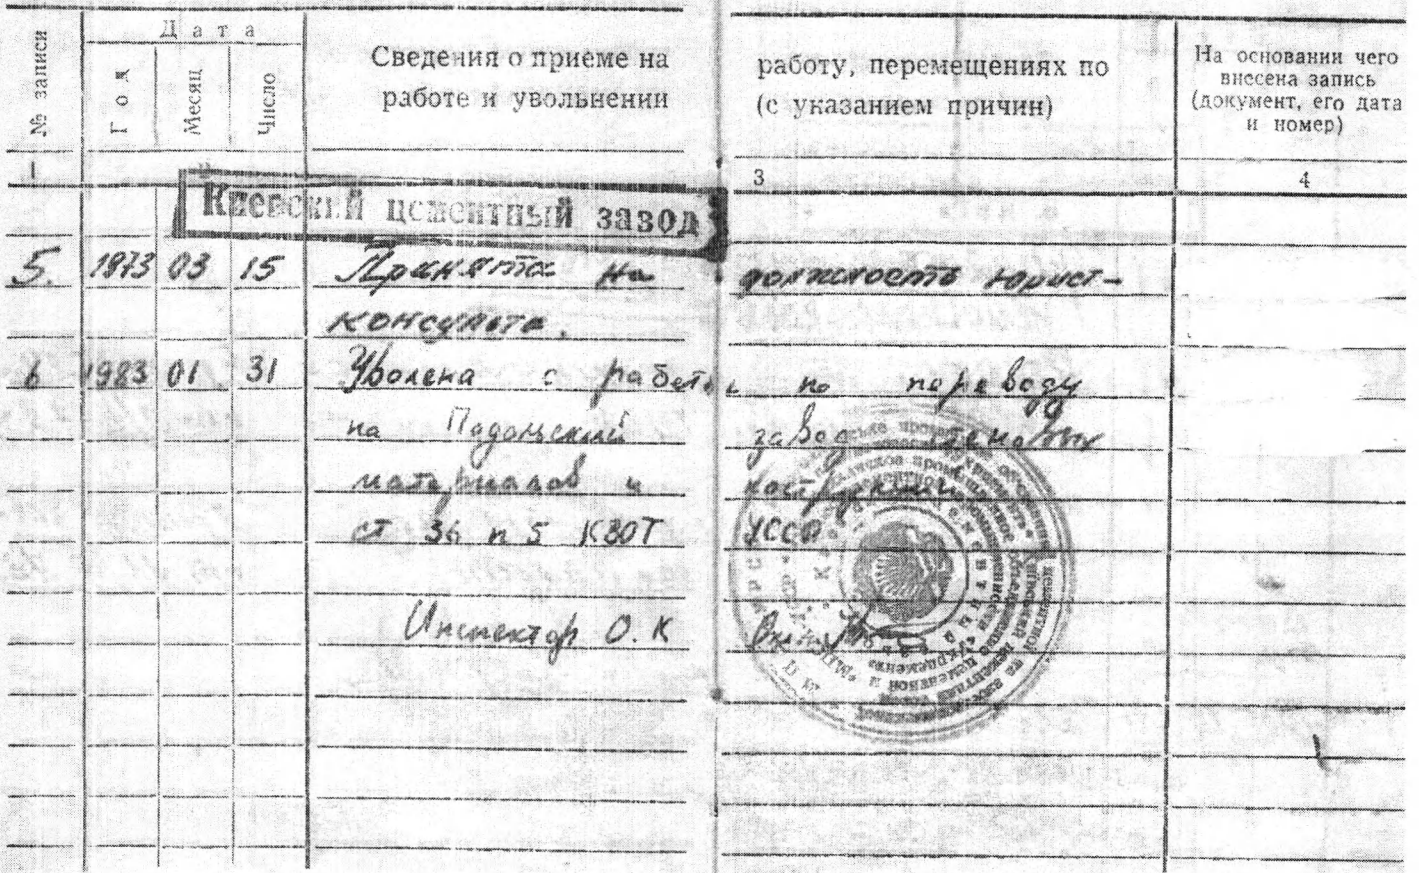 № записи
Дата
Год
Месяц
Число
Сведения о приеме на работу, перемещениях по
работе и увольнении (с указанием причин)
На основании чего
внесена запись
(документ, его дата
и номер)
3
4
Киевский цементный завод
5. 1973 03 15 Принята на должность юрист-
консульта.
6 1983 01 31 Уволена с работы по переводу
на Подольский завод стеновых
материалов и конструкций
ст 36 п 5 КЗОТ УССР
Инспектор О.К